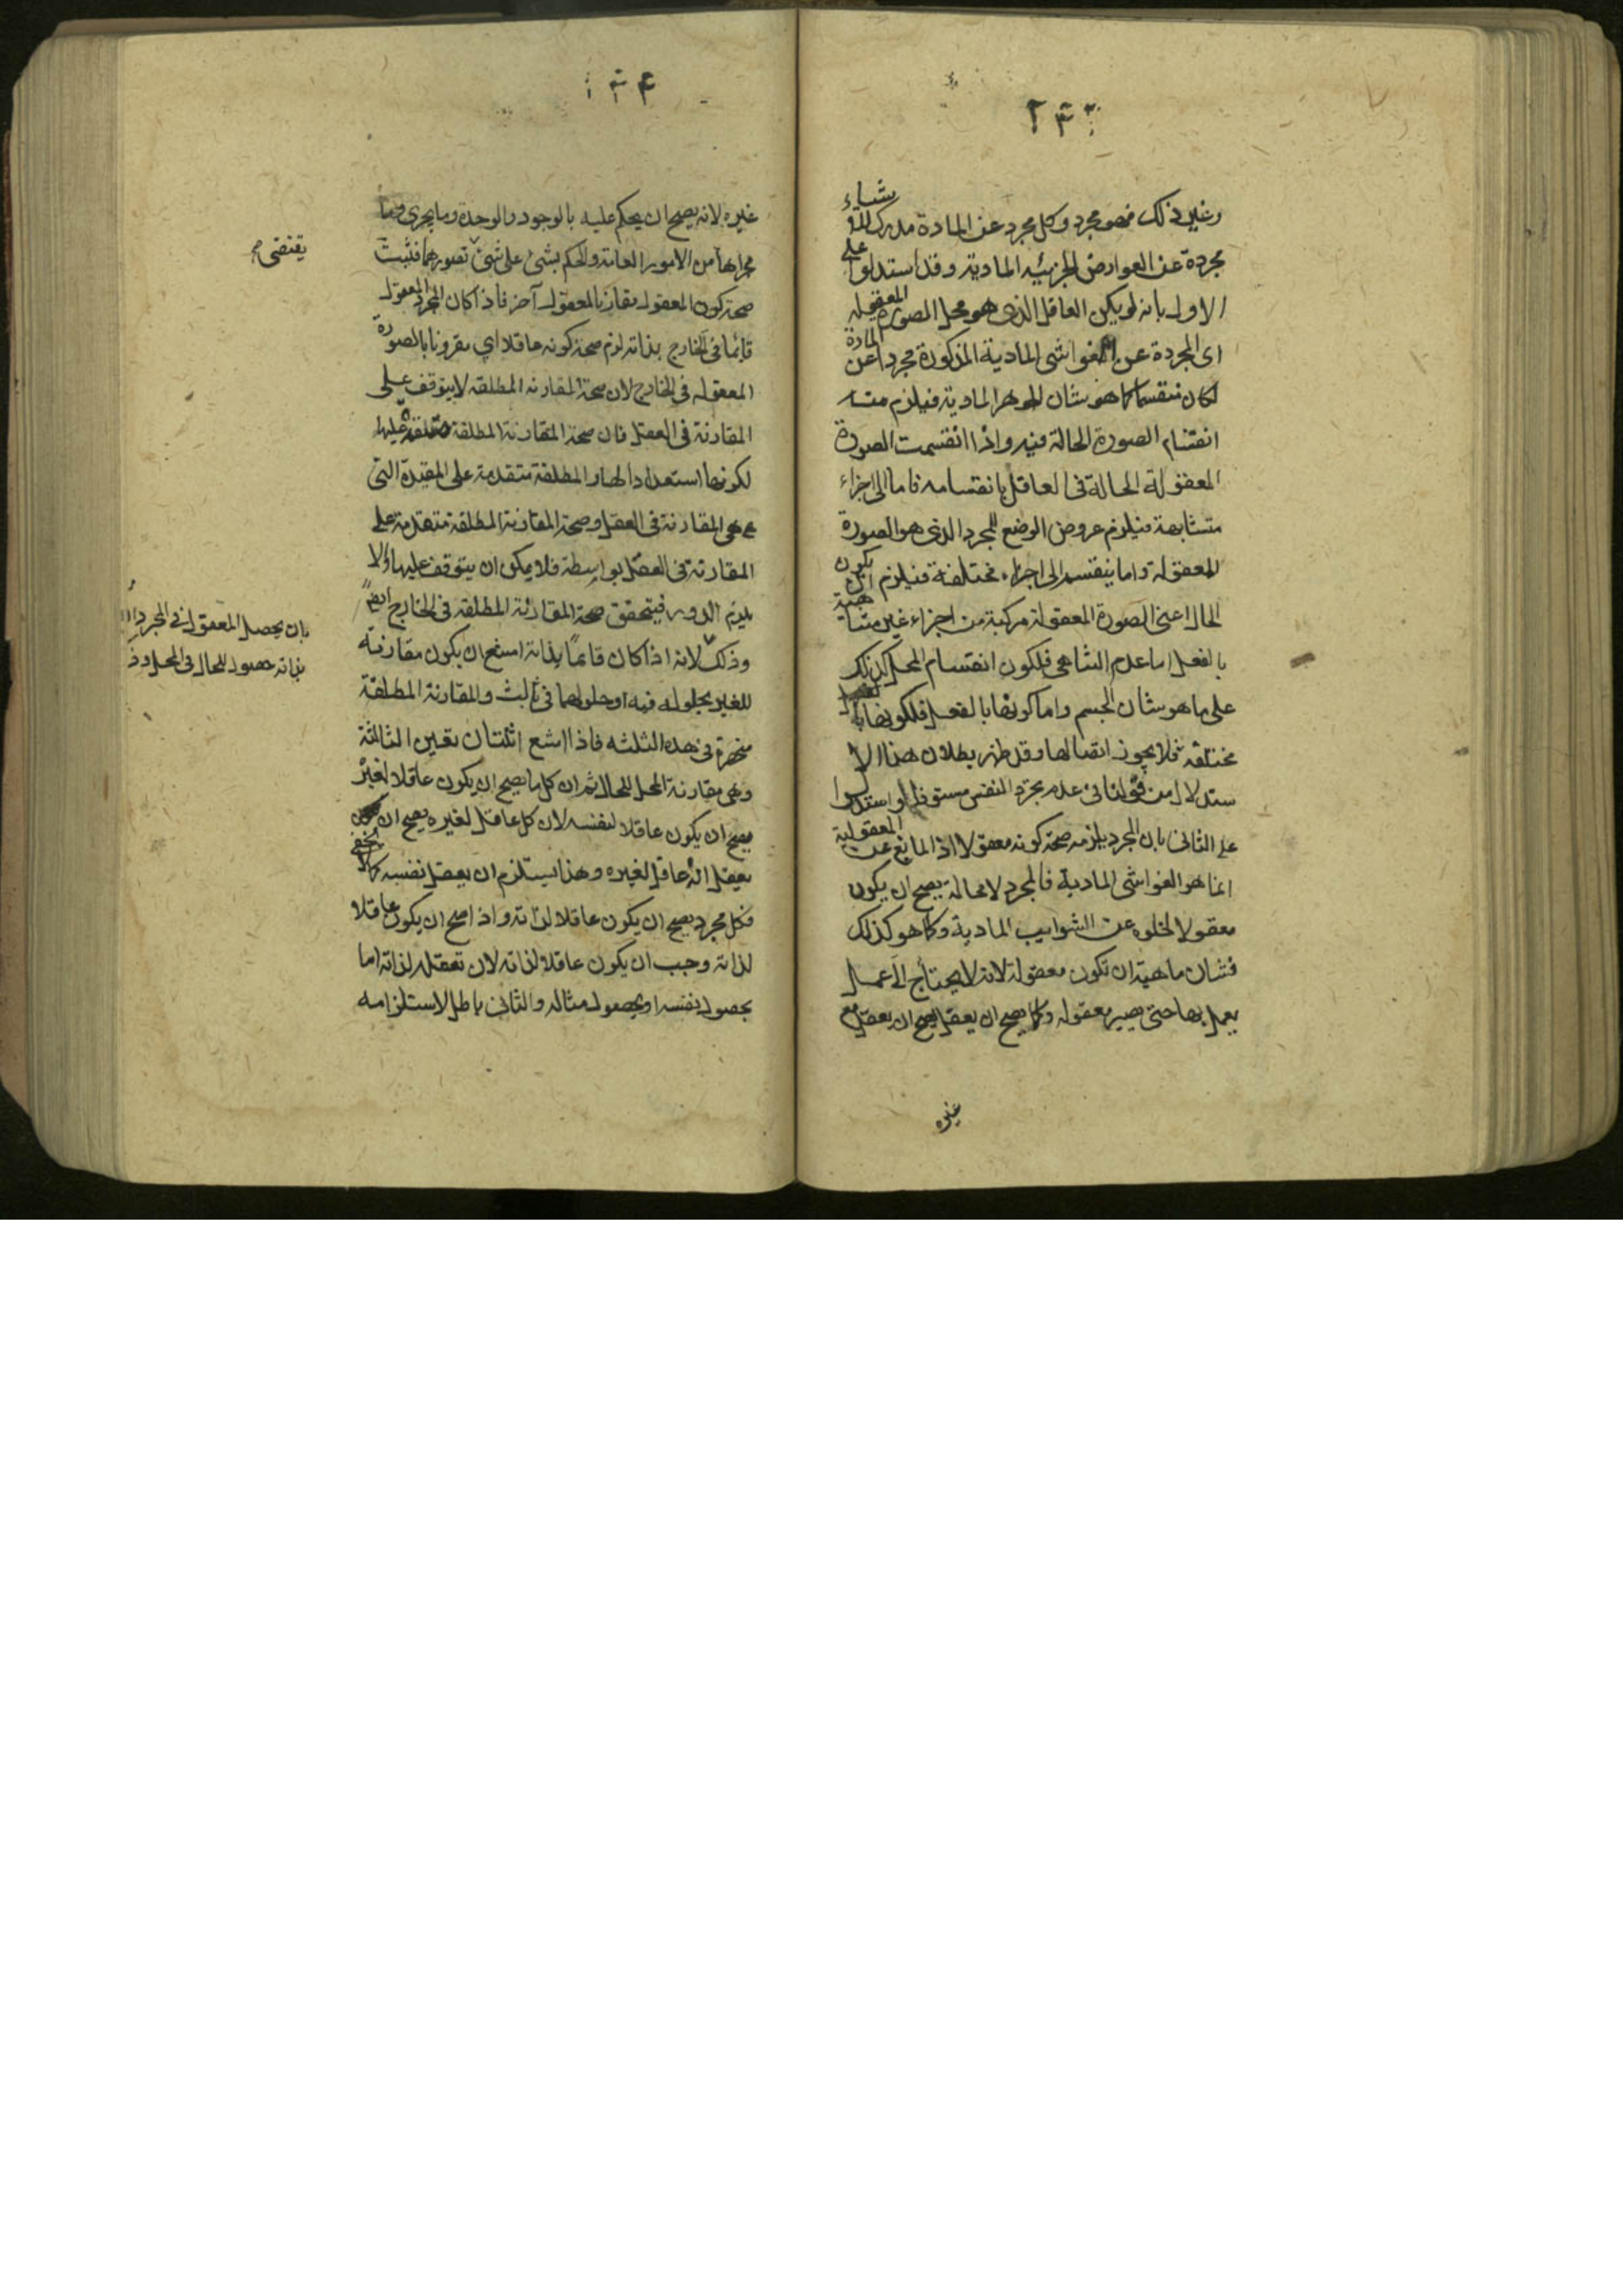 ٢٣٣
وغير ذلك فهو مجرد وكل مجرد عن المادة مدرك للاشياء
مجردة عن العوارض الجزئيه المادية وقد استدلوا على
الاول بانه لو يكن العاقل الذي هو محل الصورة المعقوله
اى المجردة عن الغواشى المادية المذكورة مجردا عن المادة
لكان منقسما كما هو شان الجوهر المادية فيلزم منه
انقسام الصورة الحالة فيه واذا انقسمت الصورة
المعقولة الحالة فى العاقل بانقسامه فاما الى اجزاء
متشابهة فيلزم عروض الوضع للمجرد الذى هو الصورة
المعقولة واما ينقسم الى اجزاء مختلفة فيلزم ان يكون
الحال اعنى الصورة المعقولة مركبة من اجزاء غير متناهية
بالفعل اما عدم التناهى فلكون انقسام المحل كذلك
على ما هو شان الجسم واما كونها بالفعل فلكونها
مختلفه فلا يجوز اتصالها وقد ظهر بطلان هذا الا
ستدلال من فى عدم تجرد النفس مستوفى واستدلوا
على الثانى بان المجرد يلزمه صحة كونه معقولا اذ المانع عن المعقولية
انما هو الغواشى المادية فالمجرد لا محالة يصح ان يكون
معقولا لخلوه عن الشوايب المادية وكلما هو كذلك
فشان ماهيته ان تكون معقولة لانه لا يحتاج الى عمل
يعمل بها حتى يصير معقوله وكلما يصح ان يعقل يصح ان يعقل مع
غيره
غيره لانه يصح ان يحكم عليه بالوجود والوحدة وما يجرى
مجراها من الامور العامة والحكم بشئ على شئ تصورهما فثبت
يقتضى
صحة كون المعقول مقارنا لمعقول آخر فاذا كان المجرد المعقول
قائما فى الخارج بذاته لزم صحة كونه عاقلا اى مقرونا بالصورة
المعقوله فى الخارج لان صحة المقارنه المطلقه لا يتوقف على
المقارنة فى العقل فان صحة المقارنة المطلقة متقدمة عليها
لكونها استعدادا لها والمطلقة متقدمة على المقيدة التى
هى المقارنة فى العقل وصحة المقارنة المطلقة متقدمة على
المقارنة فى العقل بواسطة فلا يمكن ان يتوقف عليها والا
يلزم الدور فيتحقق صحة المقارنة المطلقه فى الخارج ايضا
بان يحصل المعقول فى المجرد
بذاته حصول الحال فى المحل
وذلك لانه اذا كان قائما بذاته امتنع ان يكون مقارنته
للغير بحلوله فيه او حلولهما فى ثالث والمقارنة المطلقة
منحصرة فى هذه الثلثه فاذا امتنع اثنتان تعين الثالثة
وهى مقارنة المحل للحال ثم ان كل ما يصح ان يكون عاقلا لغيره
يصح ان يكون عاقلا لنفسه لان كل عاقل لغيره يصح ان
يعقل انه عاقل لغيره وهذا يستلزم ان يعقل نفسه كما لا يخفى
فكل مجرد يصح ان يكون عاقلا لذاته واذا صح ان يكون عاقلا
لذاته وجب ان يكون عاقلا لذاته لان تعقله لذاته اما
بحصول نفسه او بحصول مثاله والثانى باطل لاستلزامه